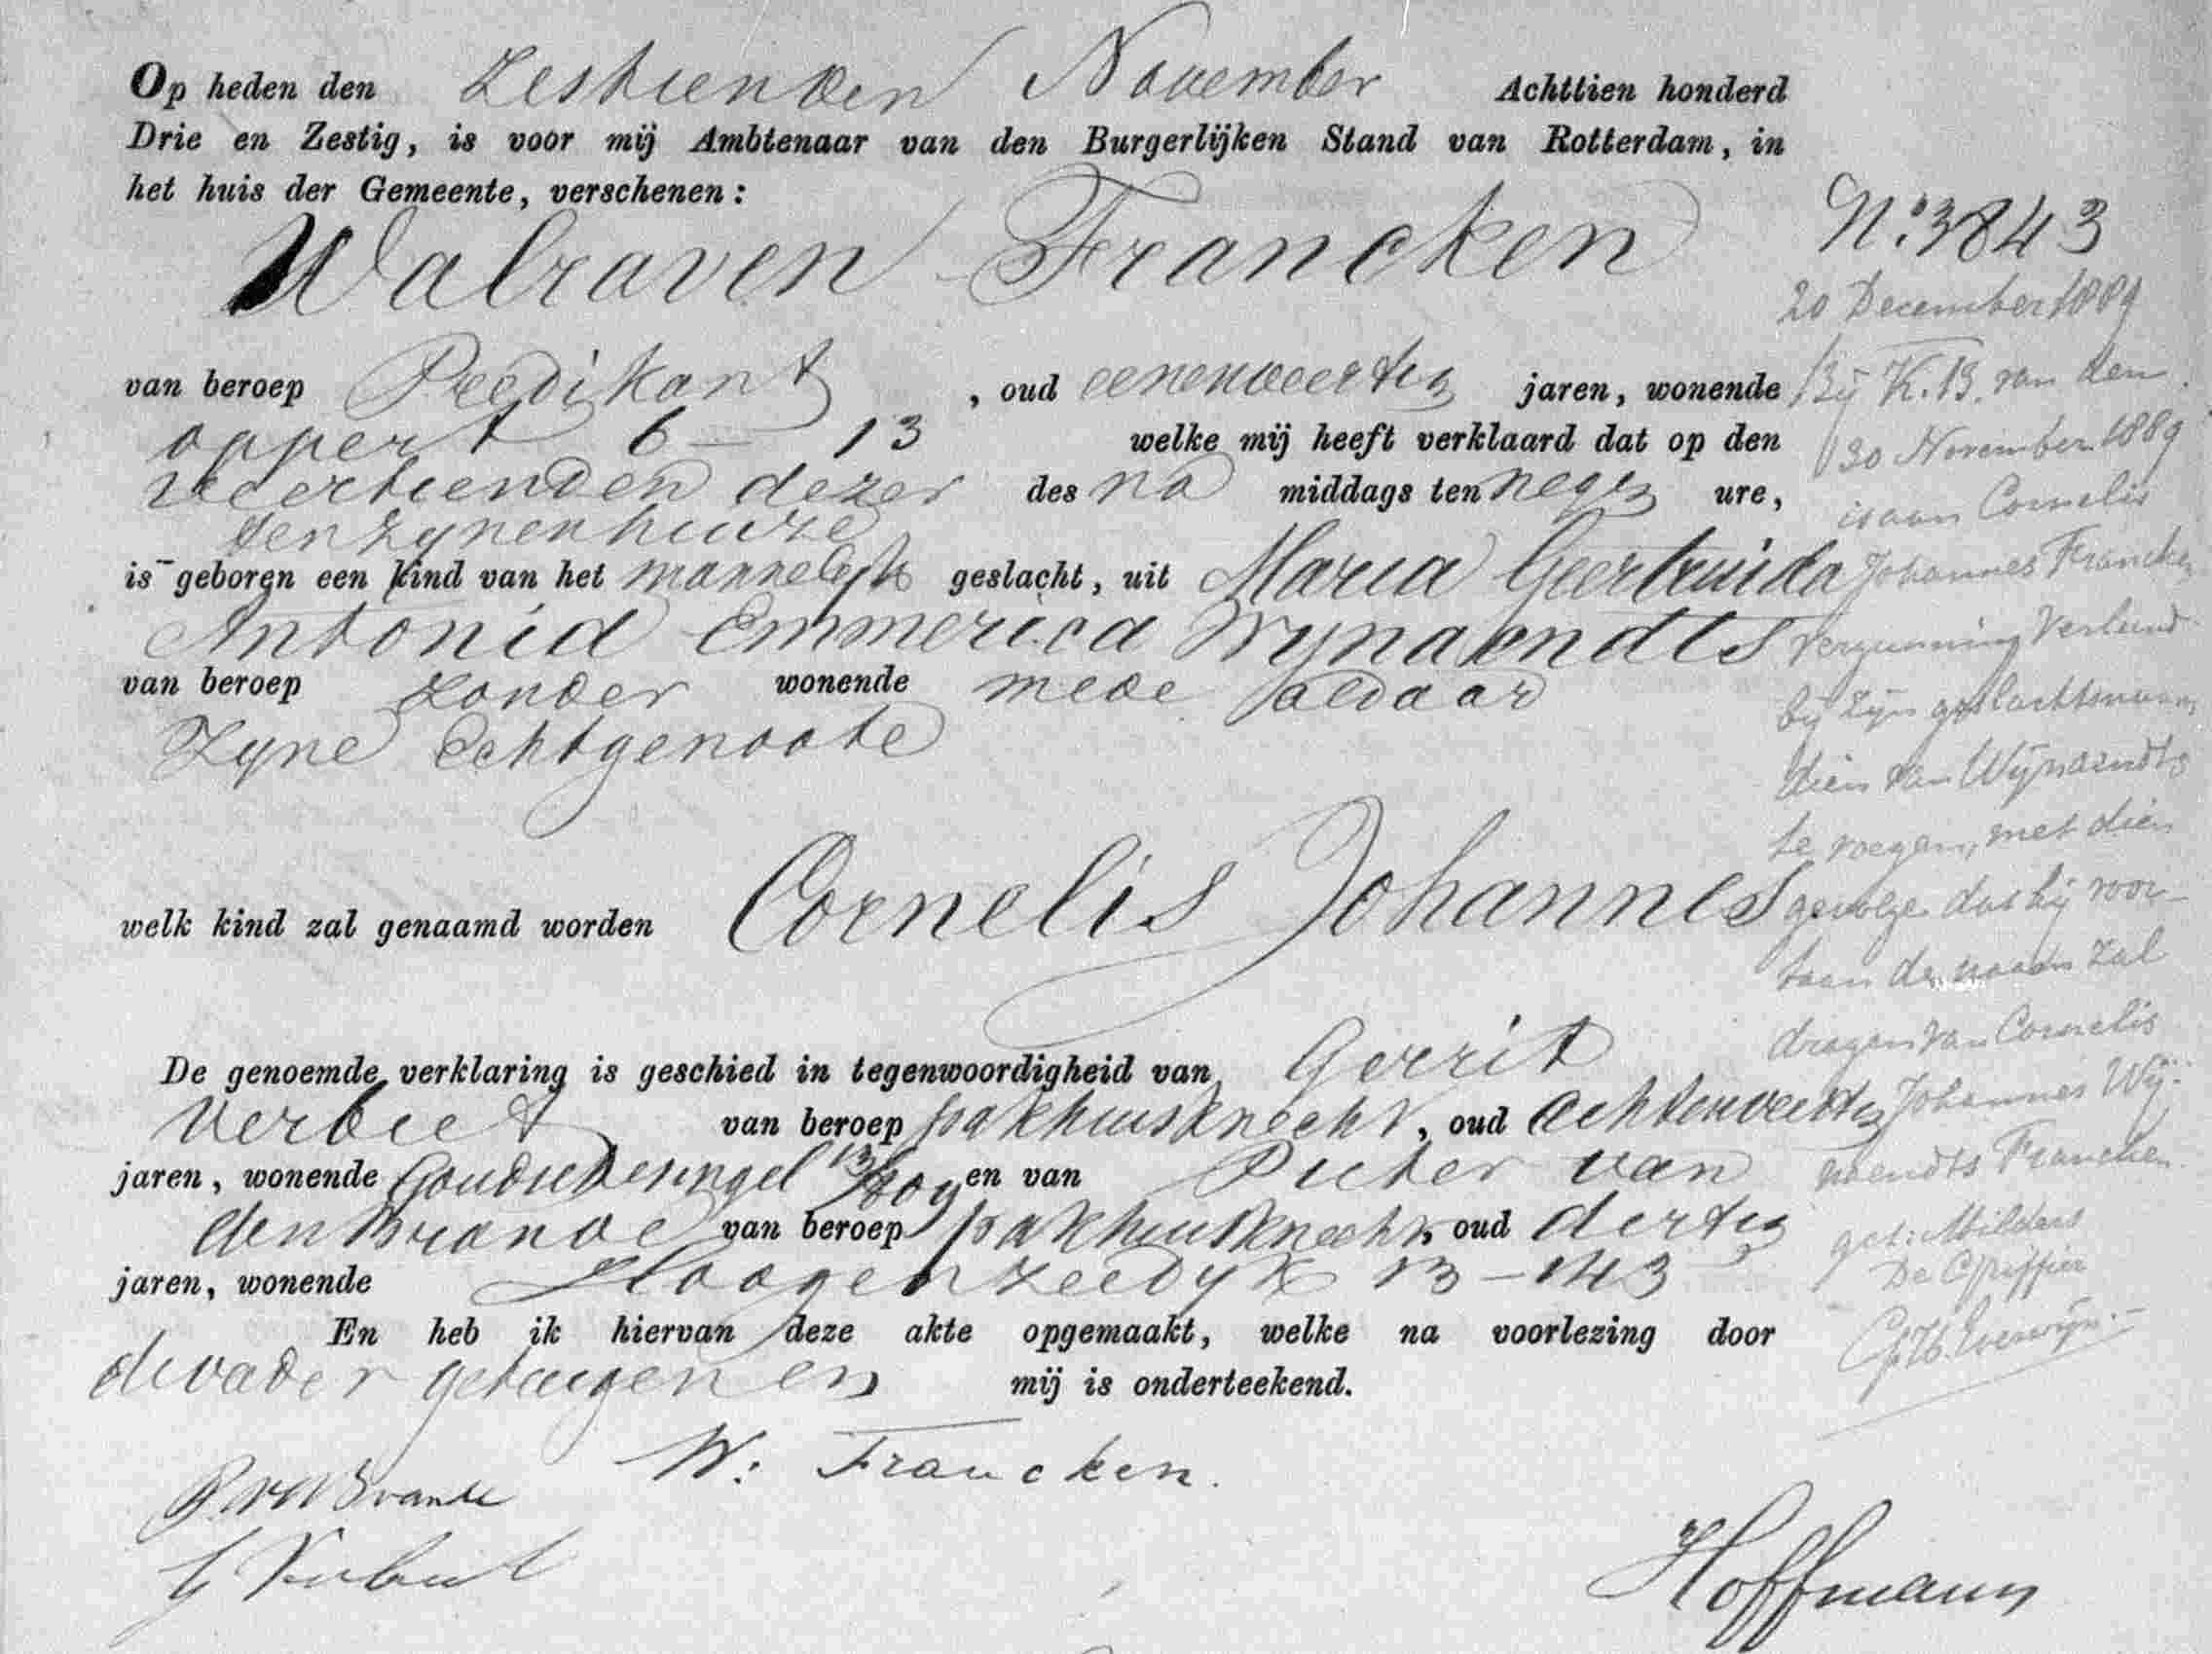 Op heden den Zestienden November Achttien honderd
Drie en Zestig, is voor mij Ambtenaar van den Burgerlijken Stand van Rotterdam, in
het huis der Gemeente, verschenen:
Walraven Francken
van beroep Predikant, oud eenenveertig jaren, wonende
oppert 6 — 13 welke mij heeft verklaard dat op den
veertienden dezer des na middags ten negen ure,
ten zynen huize
is geboren een kind van het mannelyk geslacht, uit Maria Geertruida
Antonia Emmerica Wynaendts
van beroep zonder wonende mede aldaar
Zyne Echtgenoote
welk kind zal genaamd worden Cornelis Johannes
De genoemde verklaring is geschied in tegenwoordigheid van Gerrit
Verbiet van beroep pakhuisknecht, oud achtenveertig
jaren, wonende Goudschesingel 13 en van Pieter van
den Brande van beroep pakhuisknecht, oud dertig
jaren, wonende Hoogenzeedyk 13 — 143
En heb ik hiervan deze akte opgemaakt, welke na voorlezing door
de vader getuigen en mij is onderteekend.
W. Francken.
P. vd Brande
G Verbiet
Hoffmann
No. 3843
20 December 1889
Bij K.B. van den
30 November 1889
is aan Cornelis
Johannes Francken
vergunning verleend
bij zijn geslachtsnaam
dien van Wijnaendts
te voegen, met dien
gevolge dat hij voor-
taan de naam zal
dragen van Cornelis
Johannes Wij-
naendts Francken.
get: Milders
De Griffier